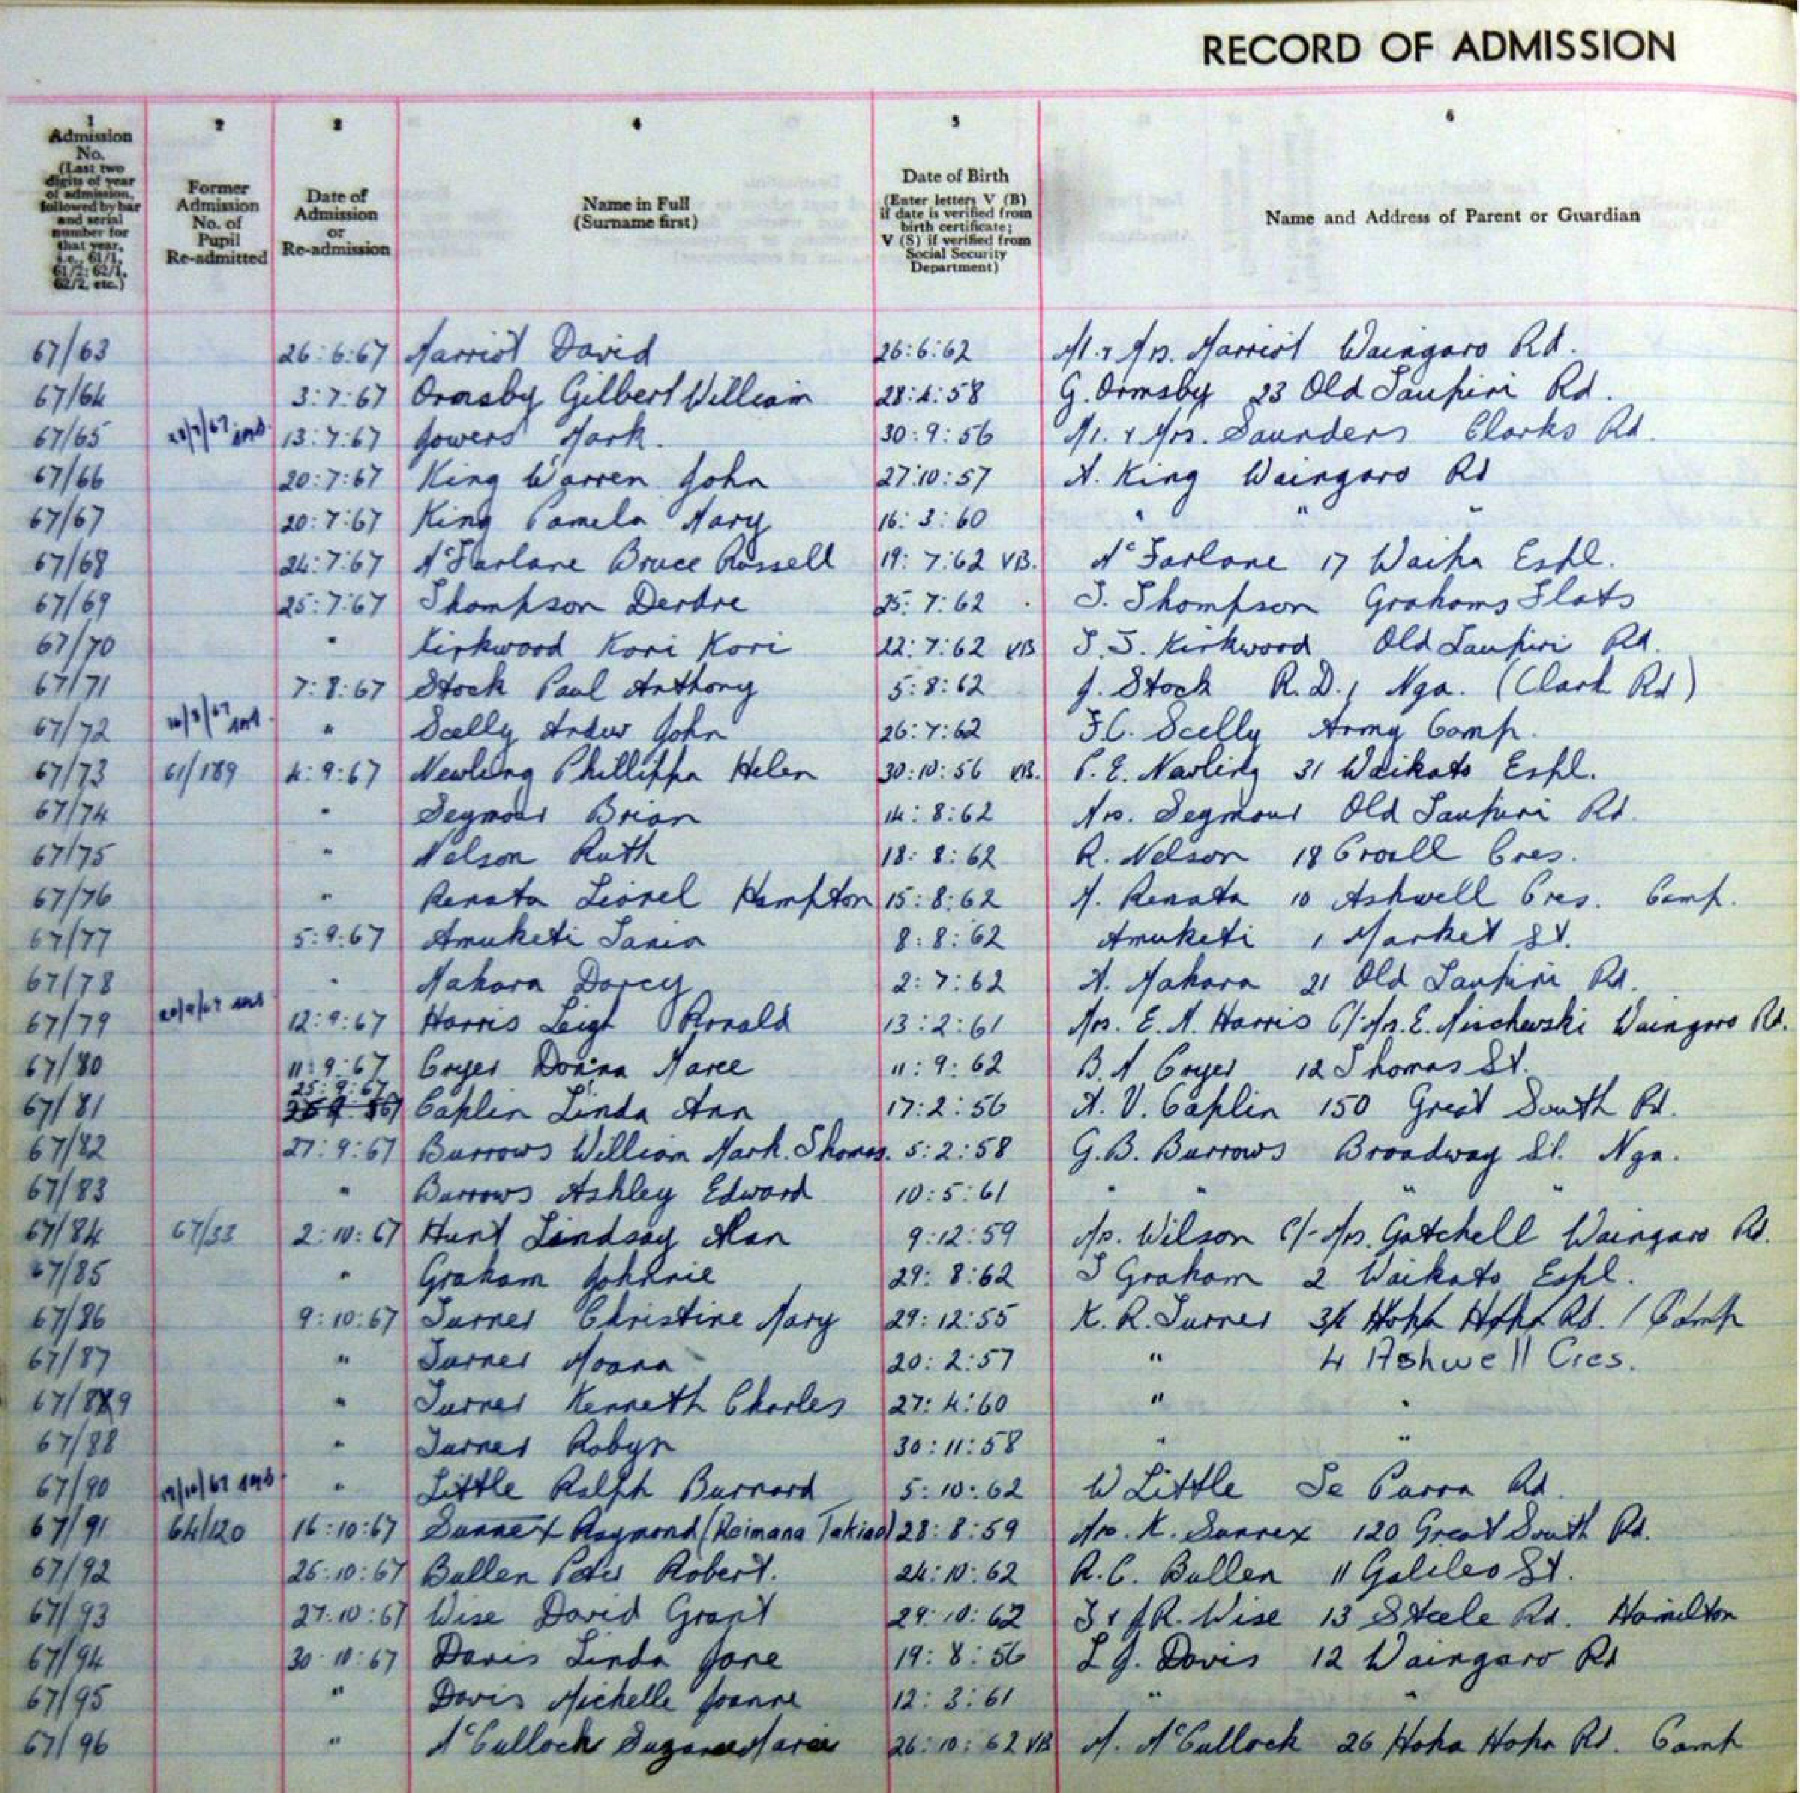 RECORD OF ADMISSION
1 2 3 4 5 6
Admission No. (Last two digits of year of admission, followed by bar and serial number for that year, i.e., 61/1, 61/2; 62/1, 62/2, etc.)
Former Admission No. of Pupil Re-admitted
Date of Admission or Re-admission
Name in Full (Surname first)
Date of Birth (Enter letters V (B) if date is verified from birth certificate; V (S) if verified from Social Security Department)
Name and Address of Parent or Guardian
67/63 26:6:67 Marriot David 26:6:62 Mr. & Mrs. Marriot Waingaro Rd.
67/64 3:7:67 Ormsby Gilbert William 28:4:58 G. Ormsby 23 Old Taupiri Rd.
67/65 13:7:67 Jowers Mark. 30:9:56 Mr. & Mrs. Saunders Clarks Rd.
67/66 20:7:67 King Warren John 27:10:57 A. King Waingaro Rd
67/67 20:7:67 King Pamela Mary 16:3:60 " " "
67/68 24:7:67 McFarlane Bruce Russell 19:7:62 VB. McFarlane 17 Waipa Espl.
67/69 25:7:67 Thompson Derdre 25:7:62 T. Thompson Grahams Flats
67/70 " Kirkwood Kori Kori 22:7:62 VB T.T. Kirkwood Old Taupiri Rd.
67/71 7:8:67 Stock Paul Anthony 5:8:62 J. Stock R.D.1 Nga. (Clark Rd)
67/72 " Scelly Andew John 26:7:62 F.C. Scelly Army Camp.
67/73 61/189 4:9:67 Newling Phillippa Helen 30:10:56 VB. P.E. Newling 31 Waikato Espl.
67/74 " Seymour Brian 14:8:62 Mrs. Seymour Old Taupiri Rd.
67/75 " Nelson Ruth 18:8:62 R. Nelson 18 Croall Cres.
67/76 " Renata Lionel Hampton 15:8:62 M. Renata 10 Ashwell Cres. Camp.
67/77 5:9:67 Amuketi Tania 8:8:62 Amuketi 1 Market St.
67/78 " Mahara Darcy 2:7:62 A. Mahara 21 Old Taupiri Rd.
67/79 12:9:67 Harris Leigh Ronald 13:2:61 Mrs. E.M. Harris C/-Mrs.E. Mischewski Waingaro Rd.
67/80 11:9:67 Cryer Donna Maree 11:9:62 B.A Cryer 12 Thomas St.
67/81 25:9:67 Caplin Linda Ann 17:2:56 A.V. Caplin 150 Great South Rd.
67/82 27:9:67 Burrows William Mark. Thomas. 5:2:58 G.B. Burrows Broadway St. Nga.
67/83 " Burrows Ashley Edward 10:5:61 " " " "
67/84 67/33 2:10:67 Hunt Lindsay Alan 9:12:59 Mrs. Wilson C/-Mrs. Gatchell Waingaro Rd.
67/85 " Graham Johnnie 29:8:62 T Graham 2 Waikato Espl.
67/86 9:10:67 Turner Christine Mary 29:12:55 K.R. Turner 34 Hoka Hoka Rd. / Camp
67/87 " Turner Moana 20:2:57 " 4 Ashwell Cres.
67/89 " Turner Kenneth Charles 27:4:60 " "
67/88 " Turner Robyn 30:11:58 " "
67/90 " Little Ralph Burnard 5:10:62 W Little Te Puroa Rd.
67/91 64/120 16:10:67 Sunnex Raymond (Reimana Takiao) 28:8:59 Mrs. K. Sunnex 120 Great South Rd.
67/92 26:10:67 Bullen Peter Robert. 24:10:62 R.C. Bullen 11 Galileo St.
67/93 27:10:67 Wise David Grant 29:10:62 T & J.R. Wise 13 Steele Rd. Hamilton
67/94 30:10:67 Davis Linda Jane 19:8:56 L J. Davis 12 Waingaro Rd
67/95 " Davis Michelle Joanne 12:3:61 " "
67/96 " McCullock Suzanne Maree 26:10:62 VB M. McCullock 26 Hoka Hoka Rd. Camp